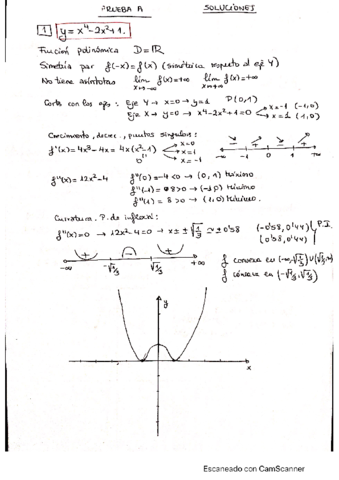 PRUEBA A SOLUCIONES
1 y = x⁴ - 2x² + 1.
Función polinómica D = ℝ
Simetría par f(-x) = f(x) (simétrica respecto al eje Y)
No tiene asíntotas lim x→-∞ f(x) = +∞ lim x→+∞ f(x) = +∞
Corte con los ejes: Eje Y → x=0 → y=1 P(0,1)
Eje X → y=0 → x⁴-2x²+1=0 x=-1 (-1,0)
x=1 (1,0)
Crecimiento, decrec., puntos singulares:
f'(x) = 4x³-4x = 4x(x²-1) x=0
x=1
x=-1
0
-∞ -1 0 1 +∞
f''(x) = 12x²-4 f''(0) = -4 <0 → (0,1) Máximo
f''(-1) = 8>0 → (-1,0) Mínimo
f''(1) = 8 >0 → (1,0) Mínimo.
Curvatura. P. de inflexión:
f''(x)=0 → 12x²-4=0 → x=±√1/3 ≃ ±0'58 (-0'58, 0'44) P.I.
(0'58, 0'44)
+ - +
-∞ -√1/3 √1/3 +∞
f convexa en (-∞,-√1/3)∪(√1/3,∞)
f cóncava en (-√1/3,√1/3)
y
x
Escaneado con CamScanner